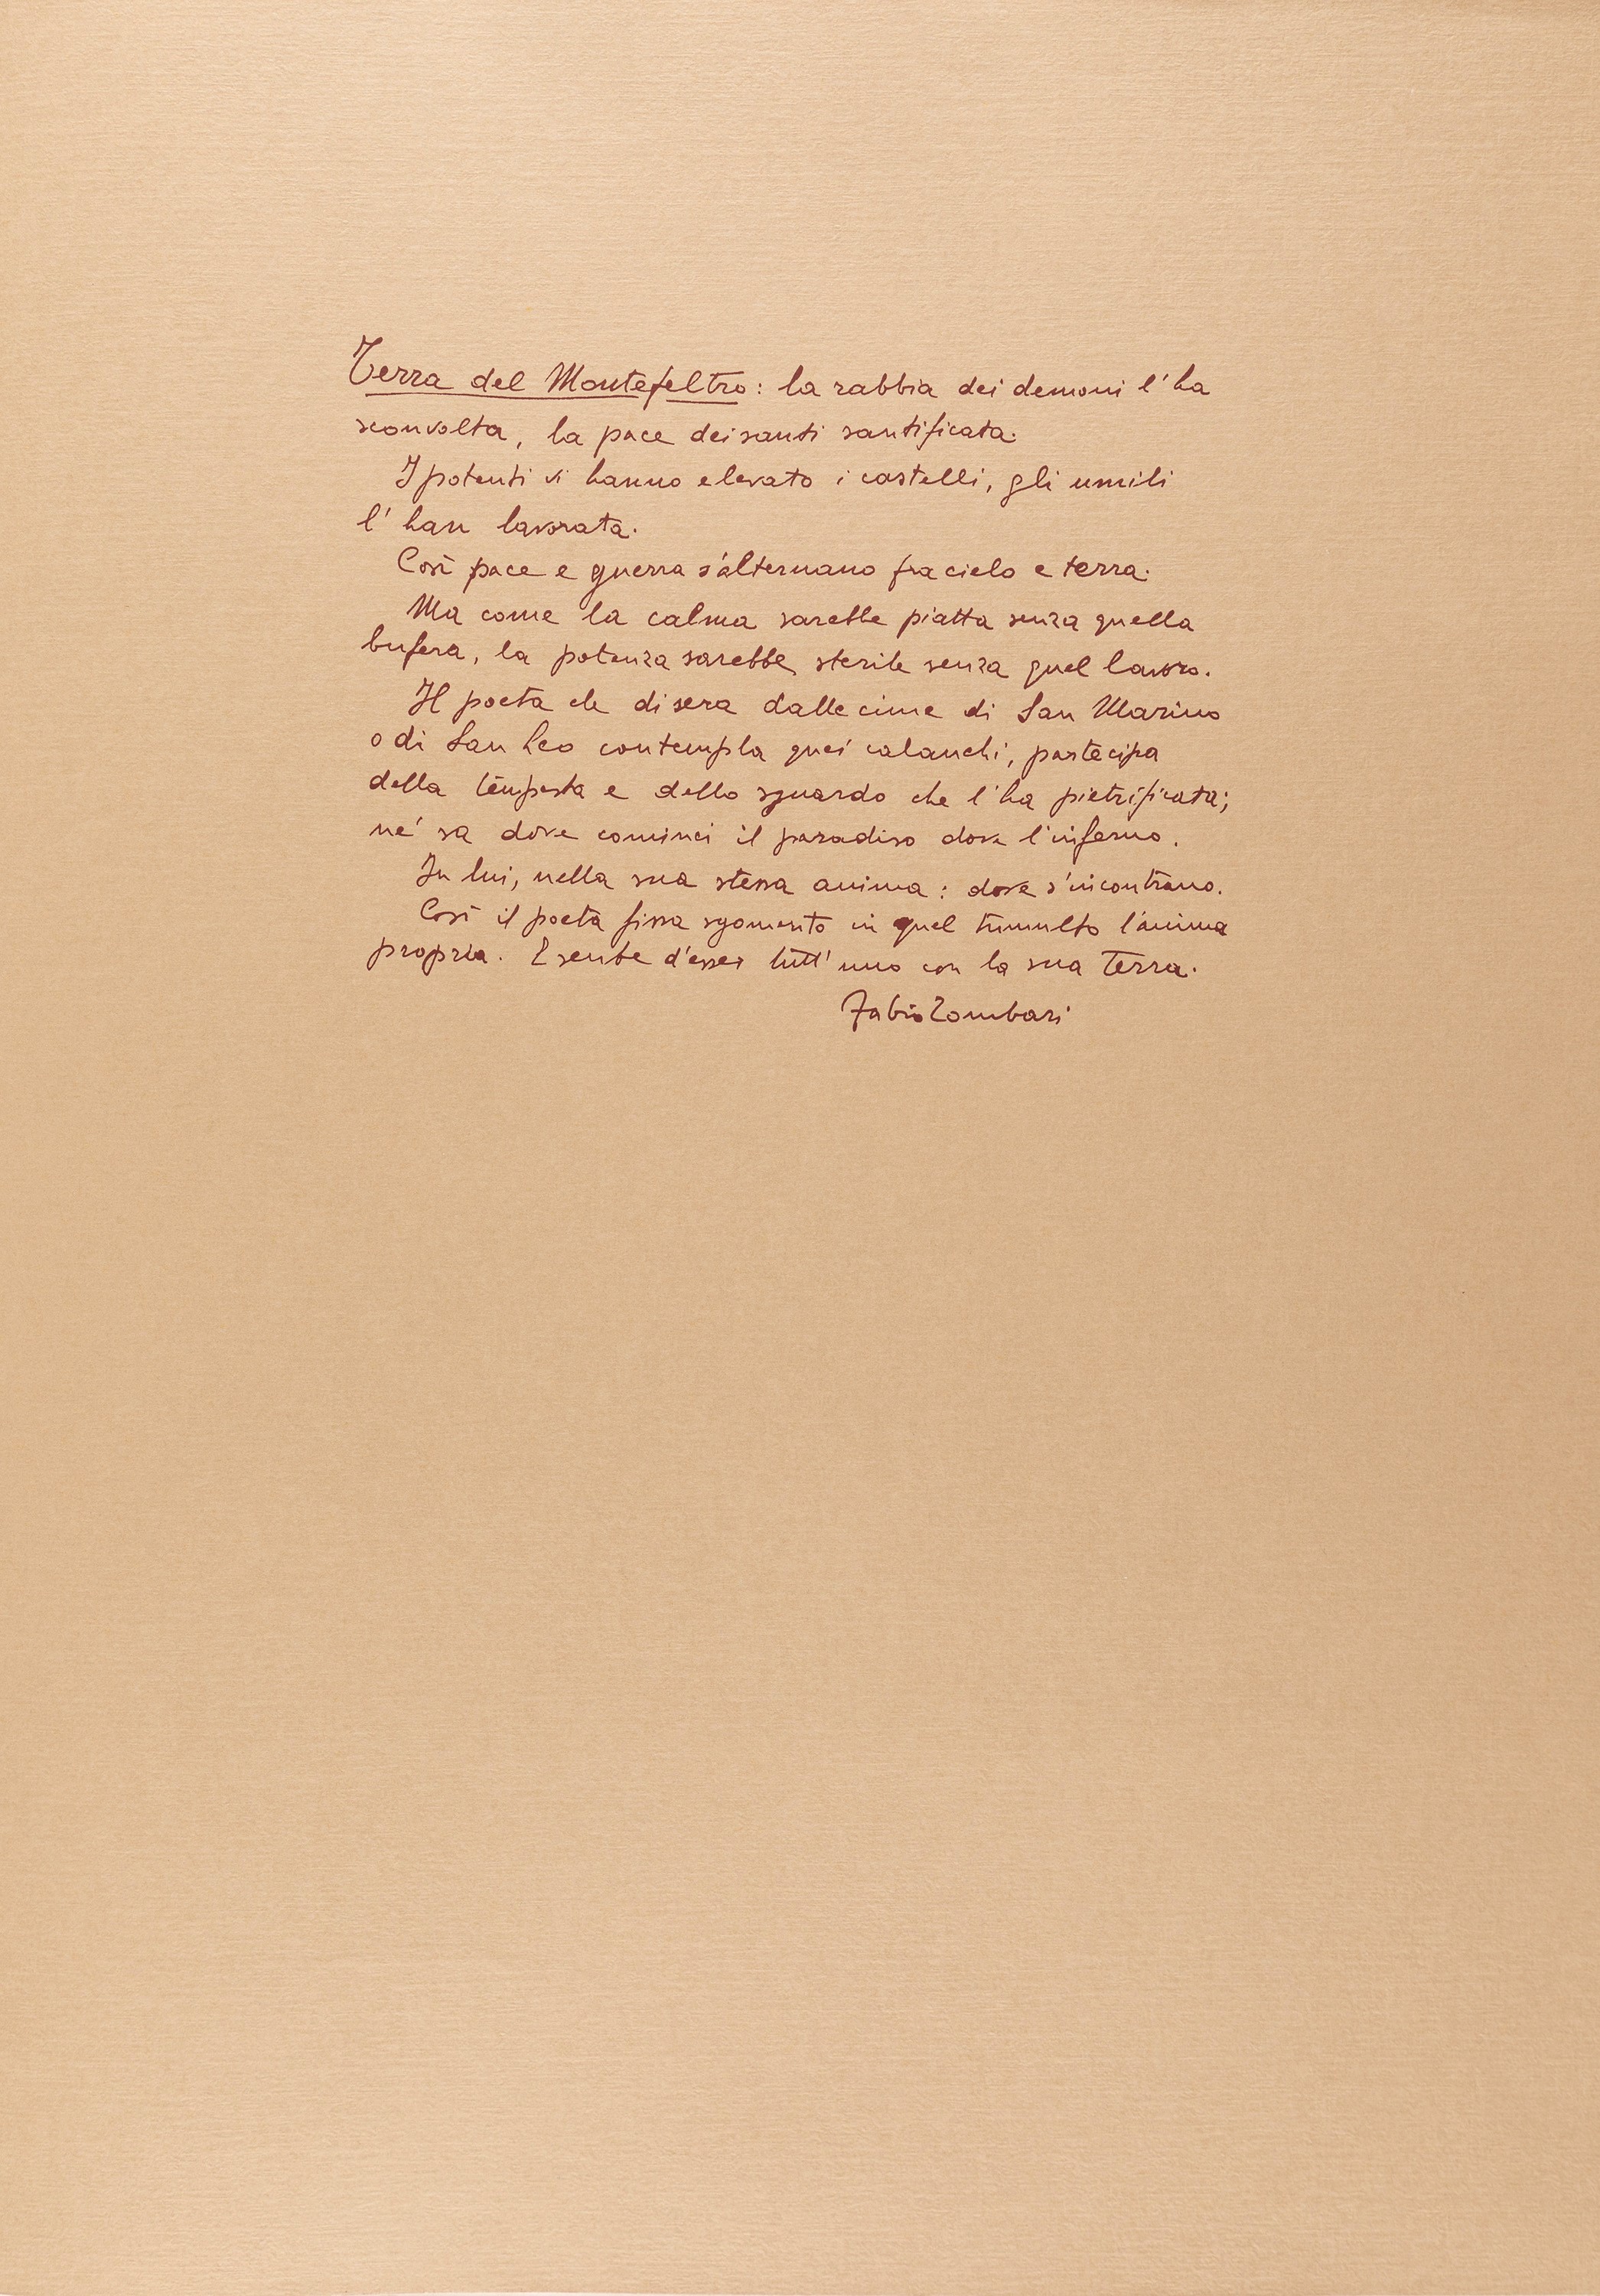 Terra del Montefeltro: la rabbia dei demoni l'ha
sconvolta, la pace dei santi santificata.
I potenti vi hanno elevato i castelli, gli umili
l'han lavorata.
Così pace e guerra s'alternano fra cielo e terra.
Ma come la calma sarebbe piatta senza quella
bufera, la potenza sarebbe sterile senza quel lavoro.
Il poeta che di sera dalle cime di San Marino
o di San Leo contempla quei calanchi, partecipa
della tempesta e dello sguardo che l'ha pietrificata;
né sa dove cominci il paradiso dove l'inferno.
In lui, nella sua stessa anima: dove s'incontrano.
Così il poeta fissa sgomento in quel tumulto l'anima
propria. E sente d'esser tutt'uno con la sua terra.
Fabio Tombari